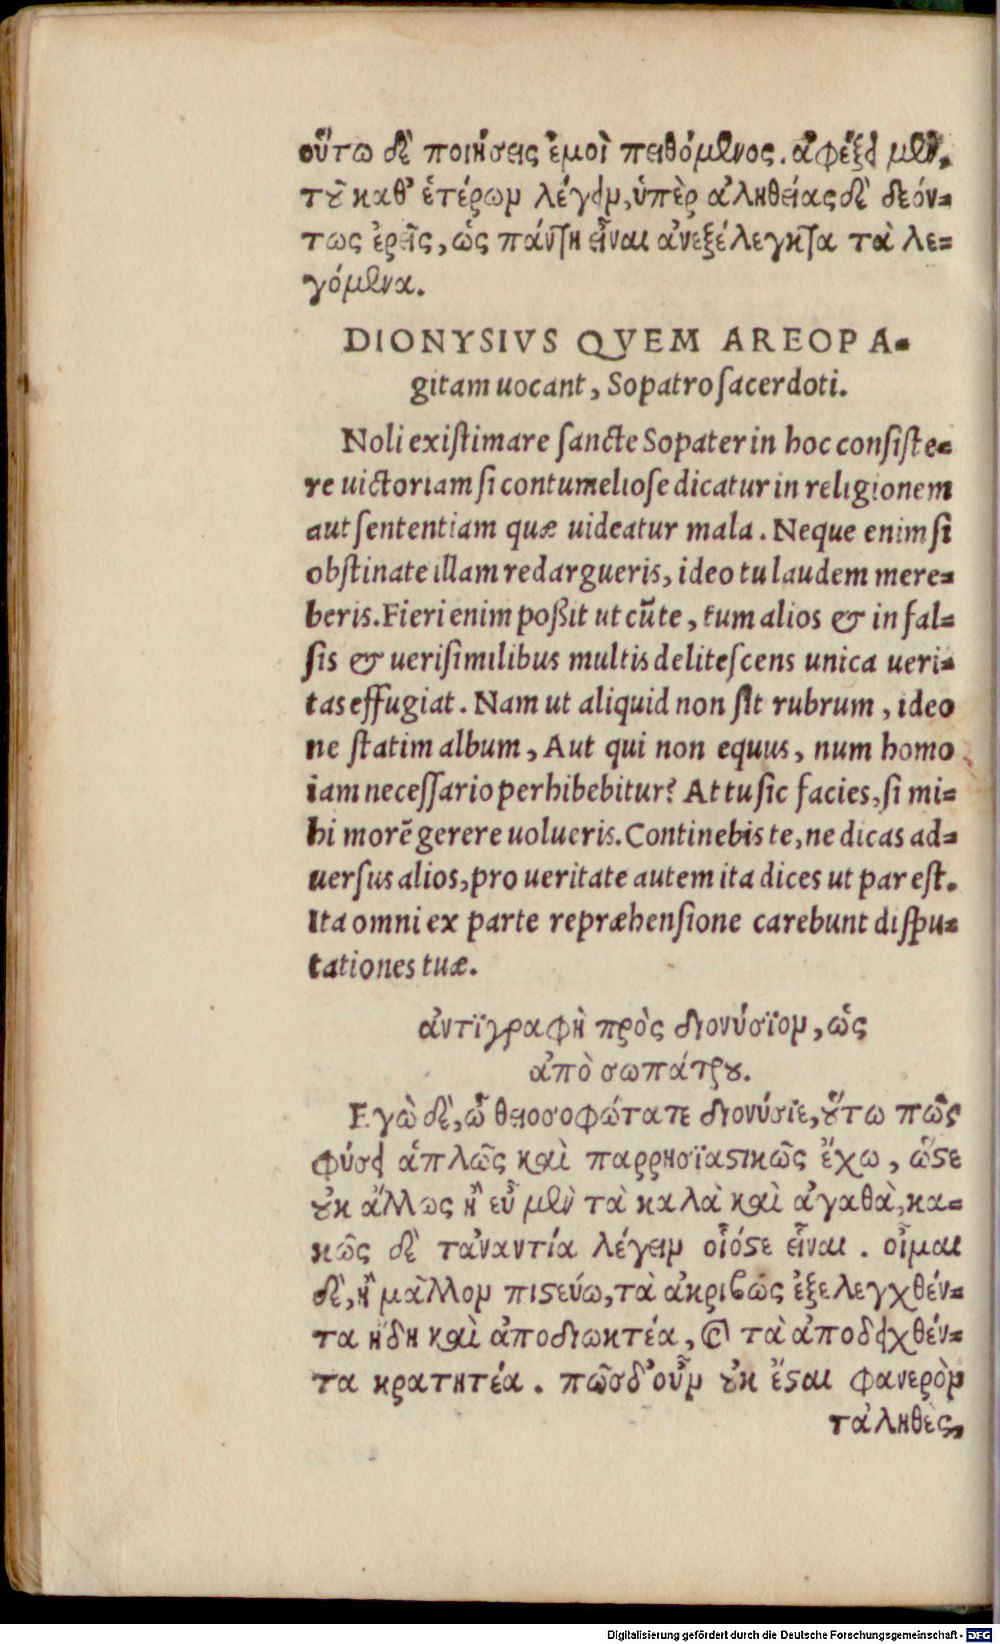 οὕτω δὲ ποιήσεις ἐμοὶ πειθόμενος. ἀφέξει μὲν,
τοῦ καθ' ἑτέρων λέγειν, ὑπὲρ ἀληθείας δὲ δεόν=
τως ἐρεῖς, ὡς πάντη εἶναι ἀνεξέλεγκτα τὰ λε=
γόμενα.
DIONYSIVS QVEM AREOPA=
gitam uocant, Sopatro ſacerdoti.
Noli exiſtimare ſancte Sopater in hoc conſiſte=
re uictoriam ſi contumelioſe dicatur in religionem
aut ſententiam quæ uideatur mala. Neque enim ſi
obſtinate illam redargueris, ideo tu laudem mere=
beris. Fieri enim poßit ut cũ te, tum alios & in fal=
ſis & ueriſimilibus multis deliteſcens unica ueri=
tas effugiat. Nam ut aliquid non ſit rubrum, ideo
ne ſtatim album, Aut qui non equus, num homo
iam neceſſario perhibebitur? At tu ſic facies, ſi mi=
hi morẽ gerere uolueris. Continebis te, ne dicas ad=
uerſus alios, pro ueritate autem ita dices ut par eſt.
Ita omni ex parte repræhenſione carebunt diſpu=
tationes tuæ.
ἀντϊγραφὴ πρὸς διονύσϊον, ὡς
ἀπὸ σωπάτρου.
Εγὼ δὲ, ὦ θειοσοφώτατε διονύσϊε, οὕτω πῶς
φύσει ἁπλῶς καὶ παρρησϊαστικῶς ἔχω, ὥστε
οὐκ ἄλλως ἢ εὖ μὲν τὰ καλὰ καὶ ἀγαθὰ, κα=
κῶς δὲ τἀναντία λέγειν οἷόστε εἶναι. οἶμαι
δὲ, ἢ μᾶλλον πιστεύω, τὰ ἀκριβῶς ἐξελεγχθέν=
τα ἤδη καὶ ἀποδιωκτέα, καὶ τὰ ἀποδειχθέν=
τα κρατητέα. πῶσδ' οὖν οὐκ ἔσται φανερὸν
τἀληθὲς,
Digitalisierung gefördert durch die Deutsche Forschungsgemeinschaft - DFG